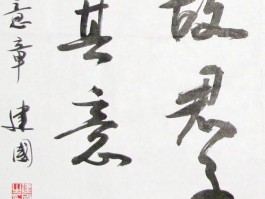 故君子
其意
意章 建國